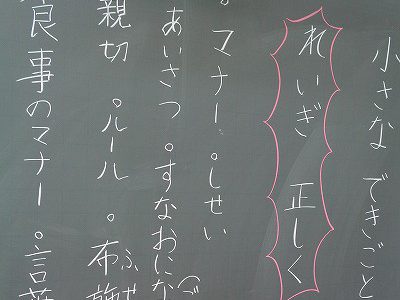 小さな できごと
れいぎ 正しく
。マナー 。しせい
あいさつ 。すなおにな
親切 。ルール 。布施
食事のマナー 。言葉